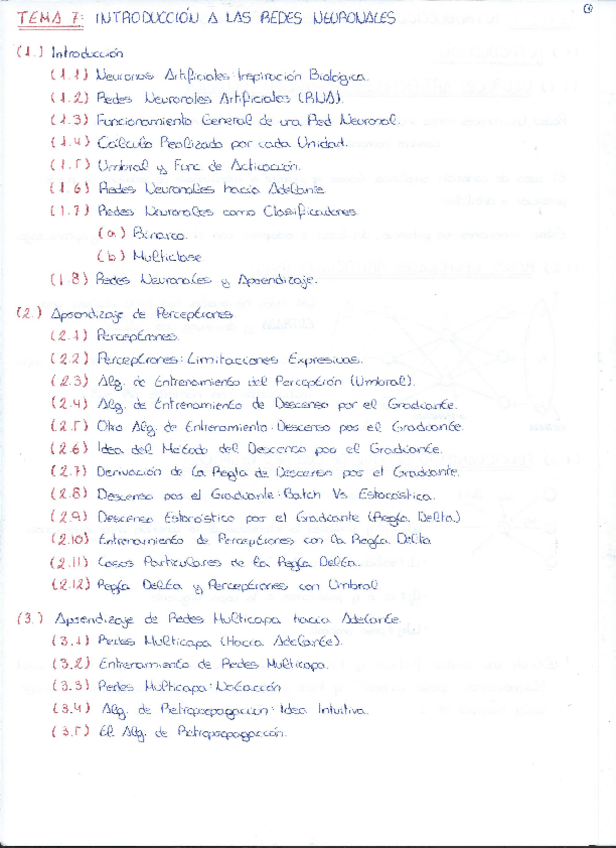 TEMA 7: INTRODUCCIÓN A LAS REDES NEURONALES
(1.) Introducción
(1.1) Neuronas Artificiales: Inspiración Biológica.
(1.2) Redes Neuronales Artificiales (RNA).
(1.3) Funcionamiento General de una Red Neuronal.
(1.4) Cálculo Realizado por cada Unidad.
(1.5) Umbral y Func de Activación.
(1.6) Redes Neuronales hacia Adelante.
(1.7) Redes Neuronales como Clasificadores.
(a) Binarco.
(b) Multiclase
(1.8) Redes Neuronales y Aprendizaje.
(2.) Aprendizaje de Perceptrones
(2.1) Perceptrones.
(2.2) Perceptrones: Limitaciones Expresivas.
(2.3) Alg. de Entrenamiento del Perceptrón (Umbral).
(2.4) Alg. de Entrenamiento de Descenso por el Gradiante.
(2.5) Otro Alg. de Entrenamiento: Descenso por el Gradiante.
(2.6) Idea del Método del Descenso por el Gradiante.
(2.7) Derivación de la Regla de Descenso por el Gradiante.
(2.8) Descenso por el Gradiante: Batch Vs Estocástica.
(2.9) Descenso Estocástico por el Gradiante (Regla Delta.)
(2.10) Entrenamiento de Perceptrones con la Regla Delta
(2.11) Casos Particulares de la Regla Delta.
(2.12) Regla Delta y Perceptrones con Umbral
(3.) Aprendizaje de Redes Multicapa hacia Adelante.
(3.1) Redes Multicapa (Hacia Adelante).
(3.2) Entrenamiento de Redes Multicapa.
(3.3) Redes Multicapa: Notación
(3.4) Alg. de Retropropagación: Idea Intuitiva.
(3.5) El Alg. de Retropropagación.